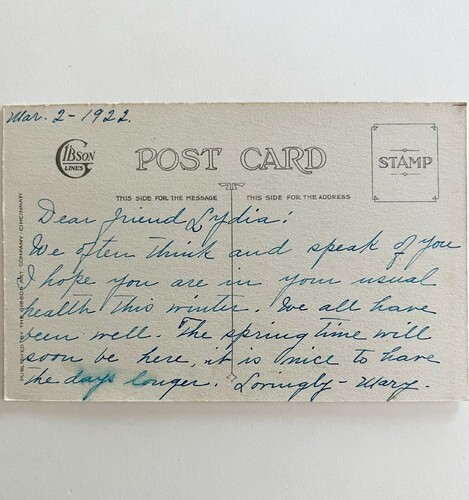 Mar. 2 - 1922.
GIBSON
LINES
POST CARD
STAMP
THIS SIDE FOR THE MESSAGE
THIS SIDE FOR THE ADDRESS
PUBLISHED BY THE GIBSON ART COMPANY-CINCINNATI
Dear friend Lydia:
We often think and speak of you
I hope you are in your usual
health this winter. We all have
been well. The springtime will
soon be here, it is nice to have
the days longer. Lovingly - Mary.